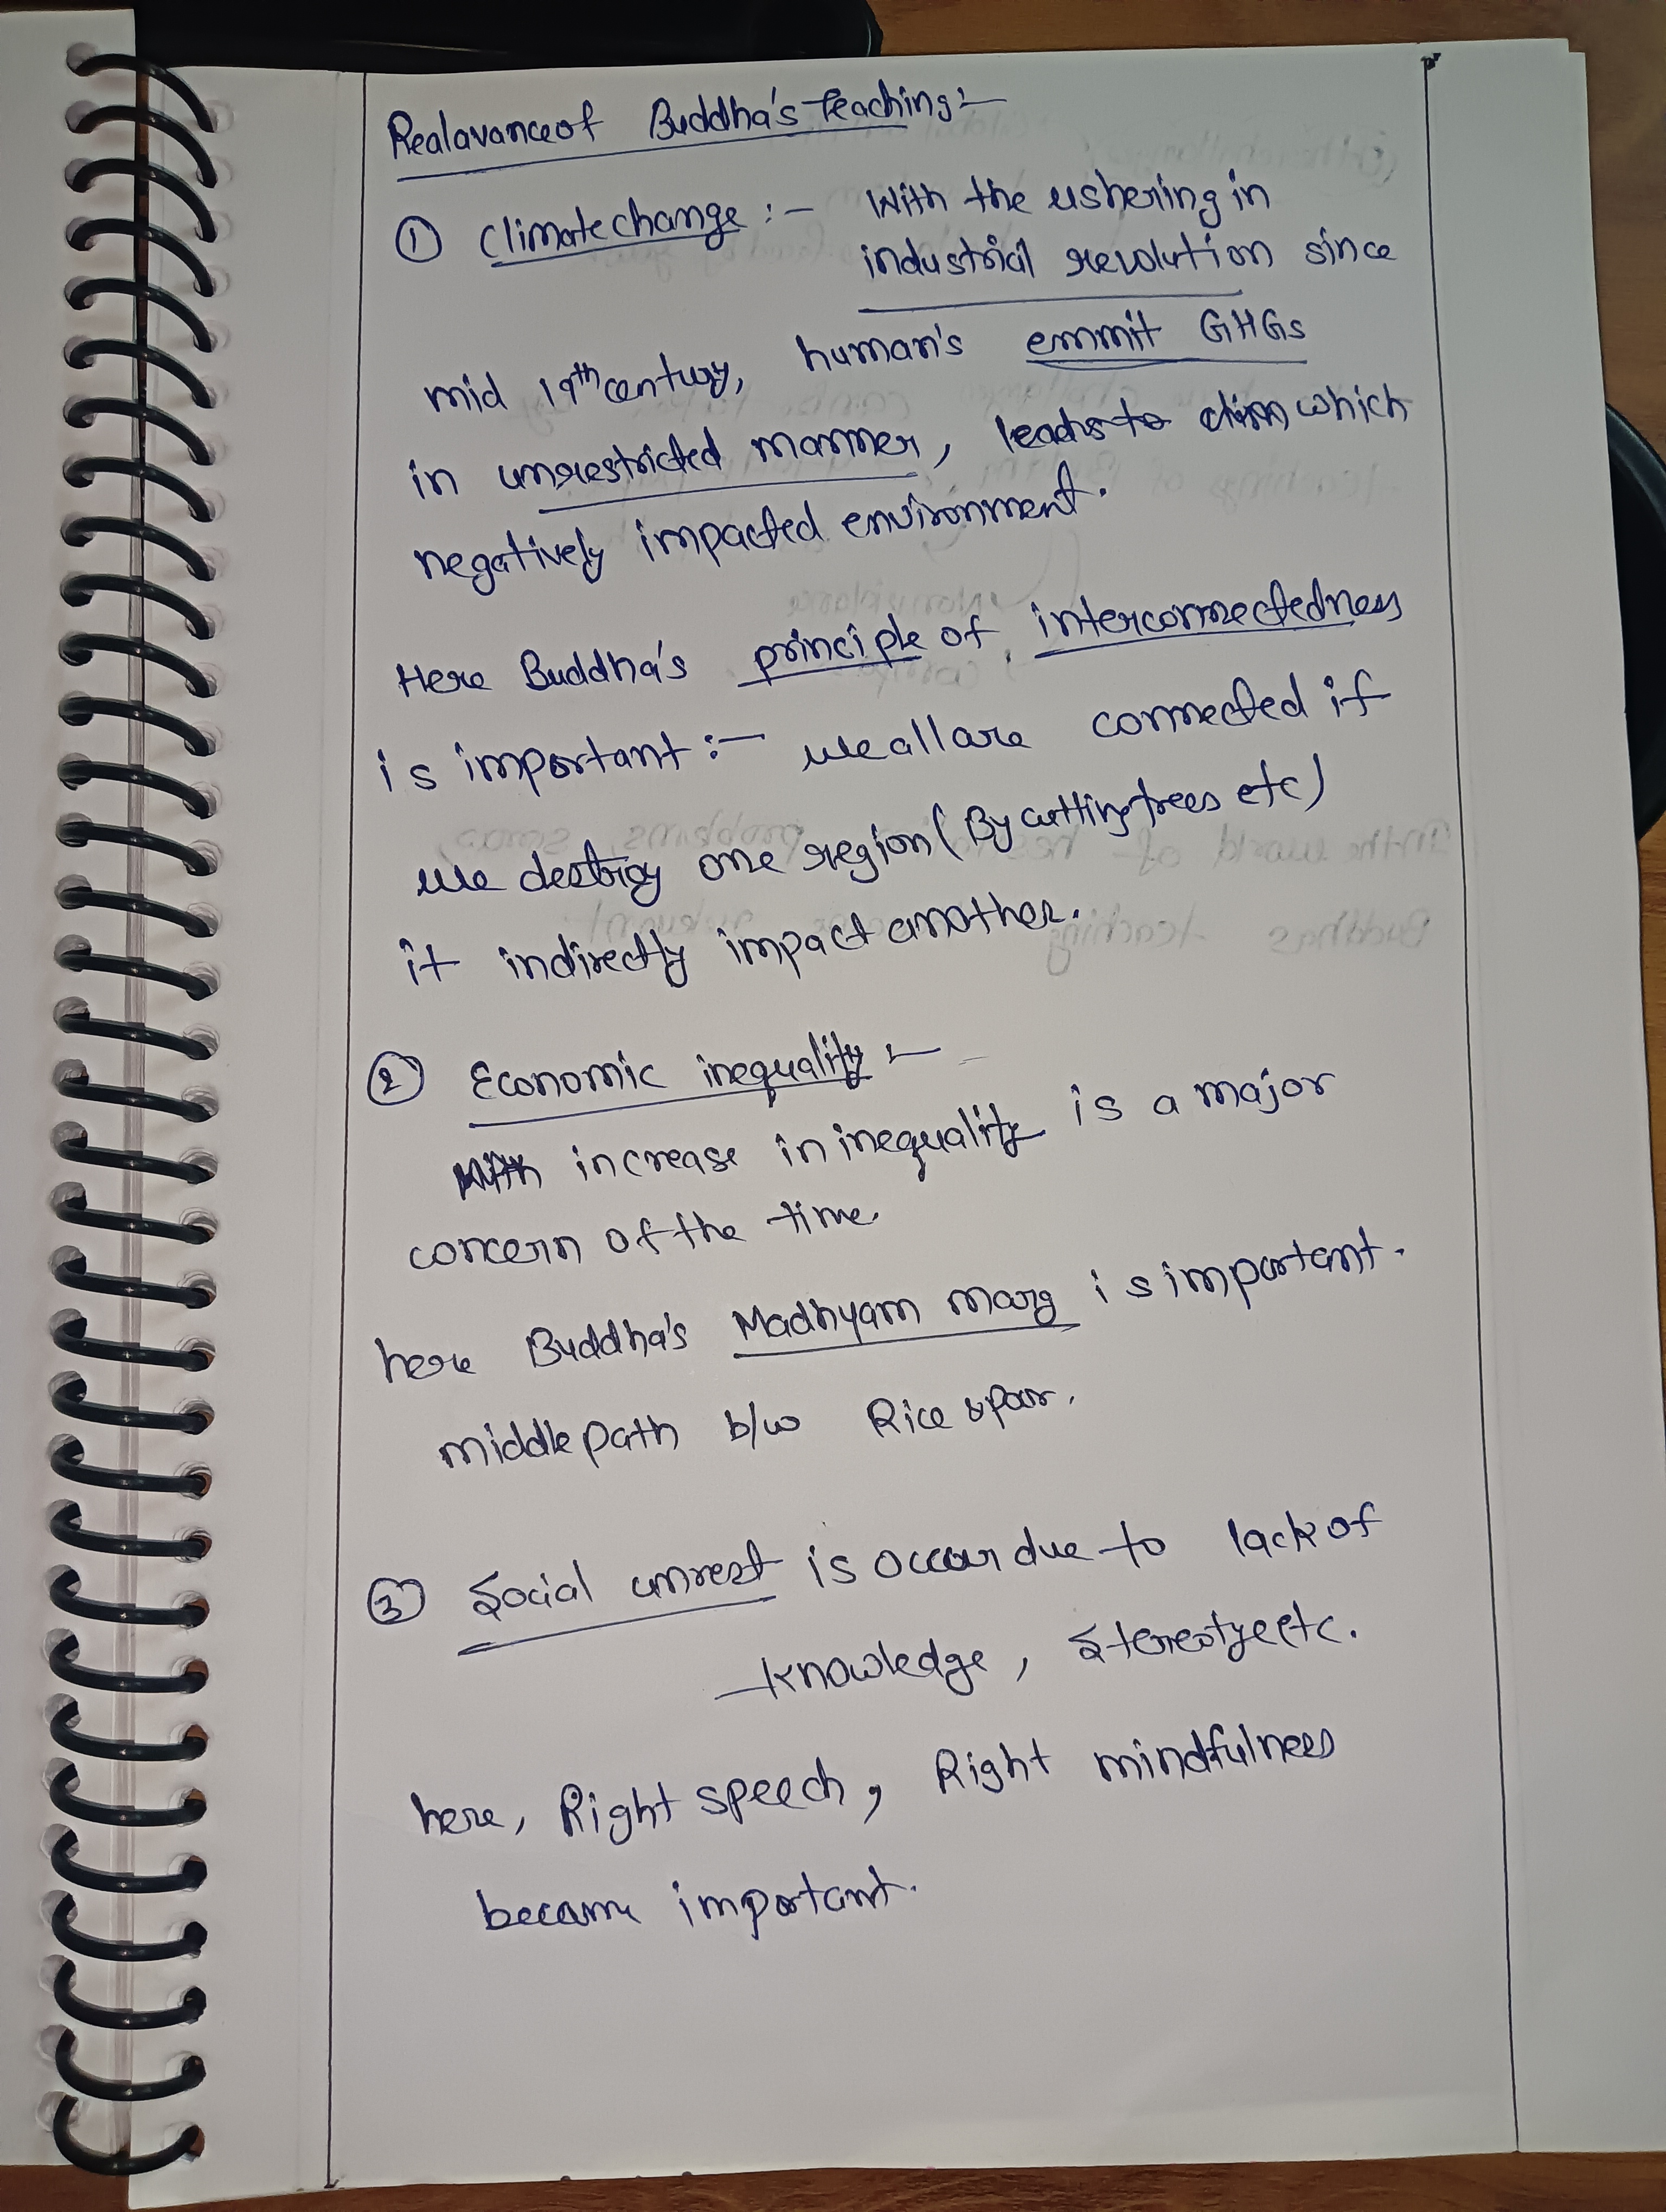 Realavance of Buddha's teaching:-
① Climate change :- With the ushering in
industrial revolution since
mid 19th century, human's emmit GHGs
in unrestricted manner, leads to which
negatively impacted environment.
Here Buddha's principle of interconnectedness
is important :- we all are connected if
we destroy one region (By cutting trees etc)
it indirectly impact another.
② Economic inequality :-
increase in inequality is a major
concern of the time.
here Buddha's Madhyam marg is important.
middle path b/w Rice & poor.
③ Social unrest is occur due to lack of
knowledge, Stereotye etc.
here, Right speech, Right mindfulness
became important.